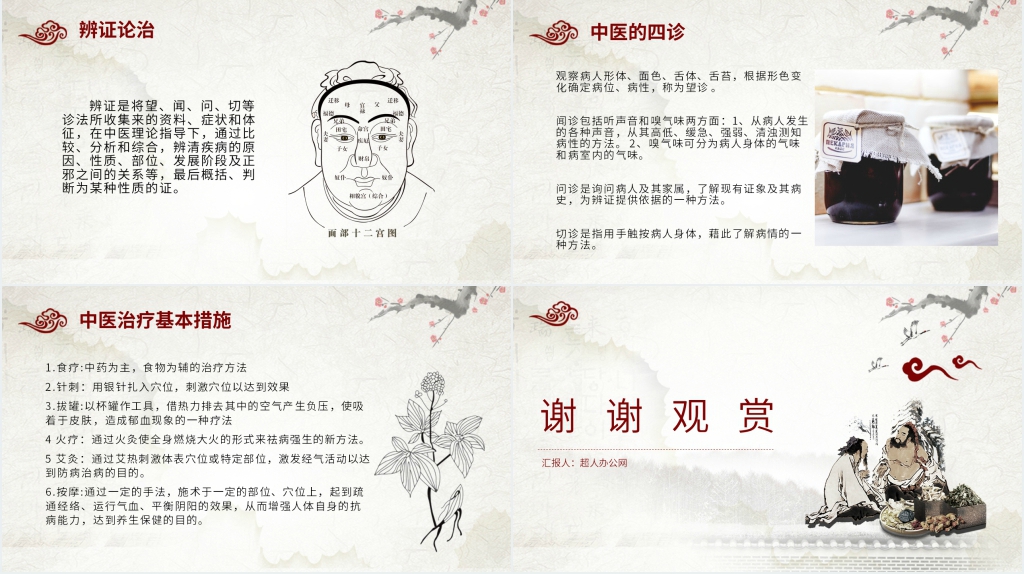 辨证论治
辨证是将望、闻、问、切等
诊法所收集来的资料、症状和体
征，在中医理论指导下，通过比
较、分析和综合，辨清疾病的原
因、性质、部位、发展阶段及正
邪之间的关系等，最后概括、判
断为某种性质的证。
迁移
母
官禄
父
迁移
福德
兄弟
兄弟
福德
夫妻
田宅
命宫
田宅
夫妻
子女
疾厄
子女
财帛
奴仆
奴仆
相貌宫（综合）
面部十二宫图
中医的四诊
观察病人形体、面色、舌体、舌苔，根据形色变
化确定病位、病性，称为望诊 。
闻诊包括听声音和嗅气味两方面：1、从病人发生
的各种声音，从其高低、缓急、强弱、清浊测知
病性的方法。 2、嗅气味可分为病人身体的气味
和病室内的气味。
问诊是询问病人及其家属，了解现有证象及其病
史，为辨证提供依据的一种方法。
切诊是指用手触按病人身体，藉此了解病情的一
种方法。
中医治疗基本措施
1.食疗:中药为主，食物为辅的治疗方法
2.针刺：用银针扎入穴位，刺激穴位以达到效果
3.拔罐:以杯罐作工具，借热力排去其中的空气产生负压，使吸
着于皮肤，造成郁血现象的一种疗法
4 火疗：通过火灸使全身燃烧大火的形式来祛病强生的新方法。
5 艾灸：通过艾热刺激体表穴位或特定部位，激发经气活动以达
到防病治病的目的。
6.按摩:通过一定的手法，施术于一定的部位、穴位上，起到疏
通经络、运行气血、平衡阴阳的效果，从而增强人体自身的抗
病能力，达到养生保健的目的。
谢谢观赏
汇报人：超人办公网